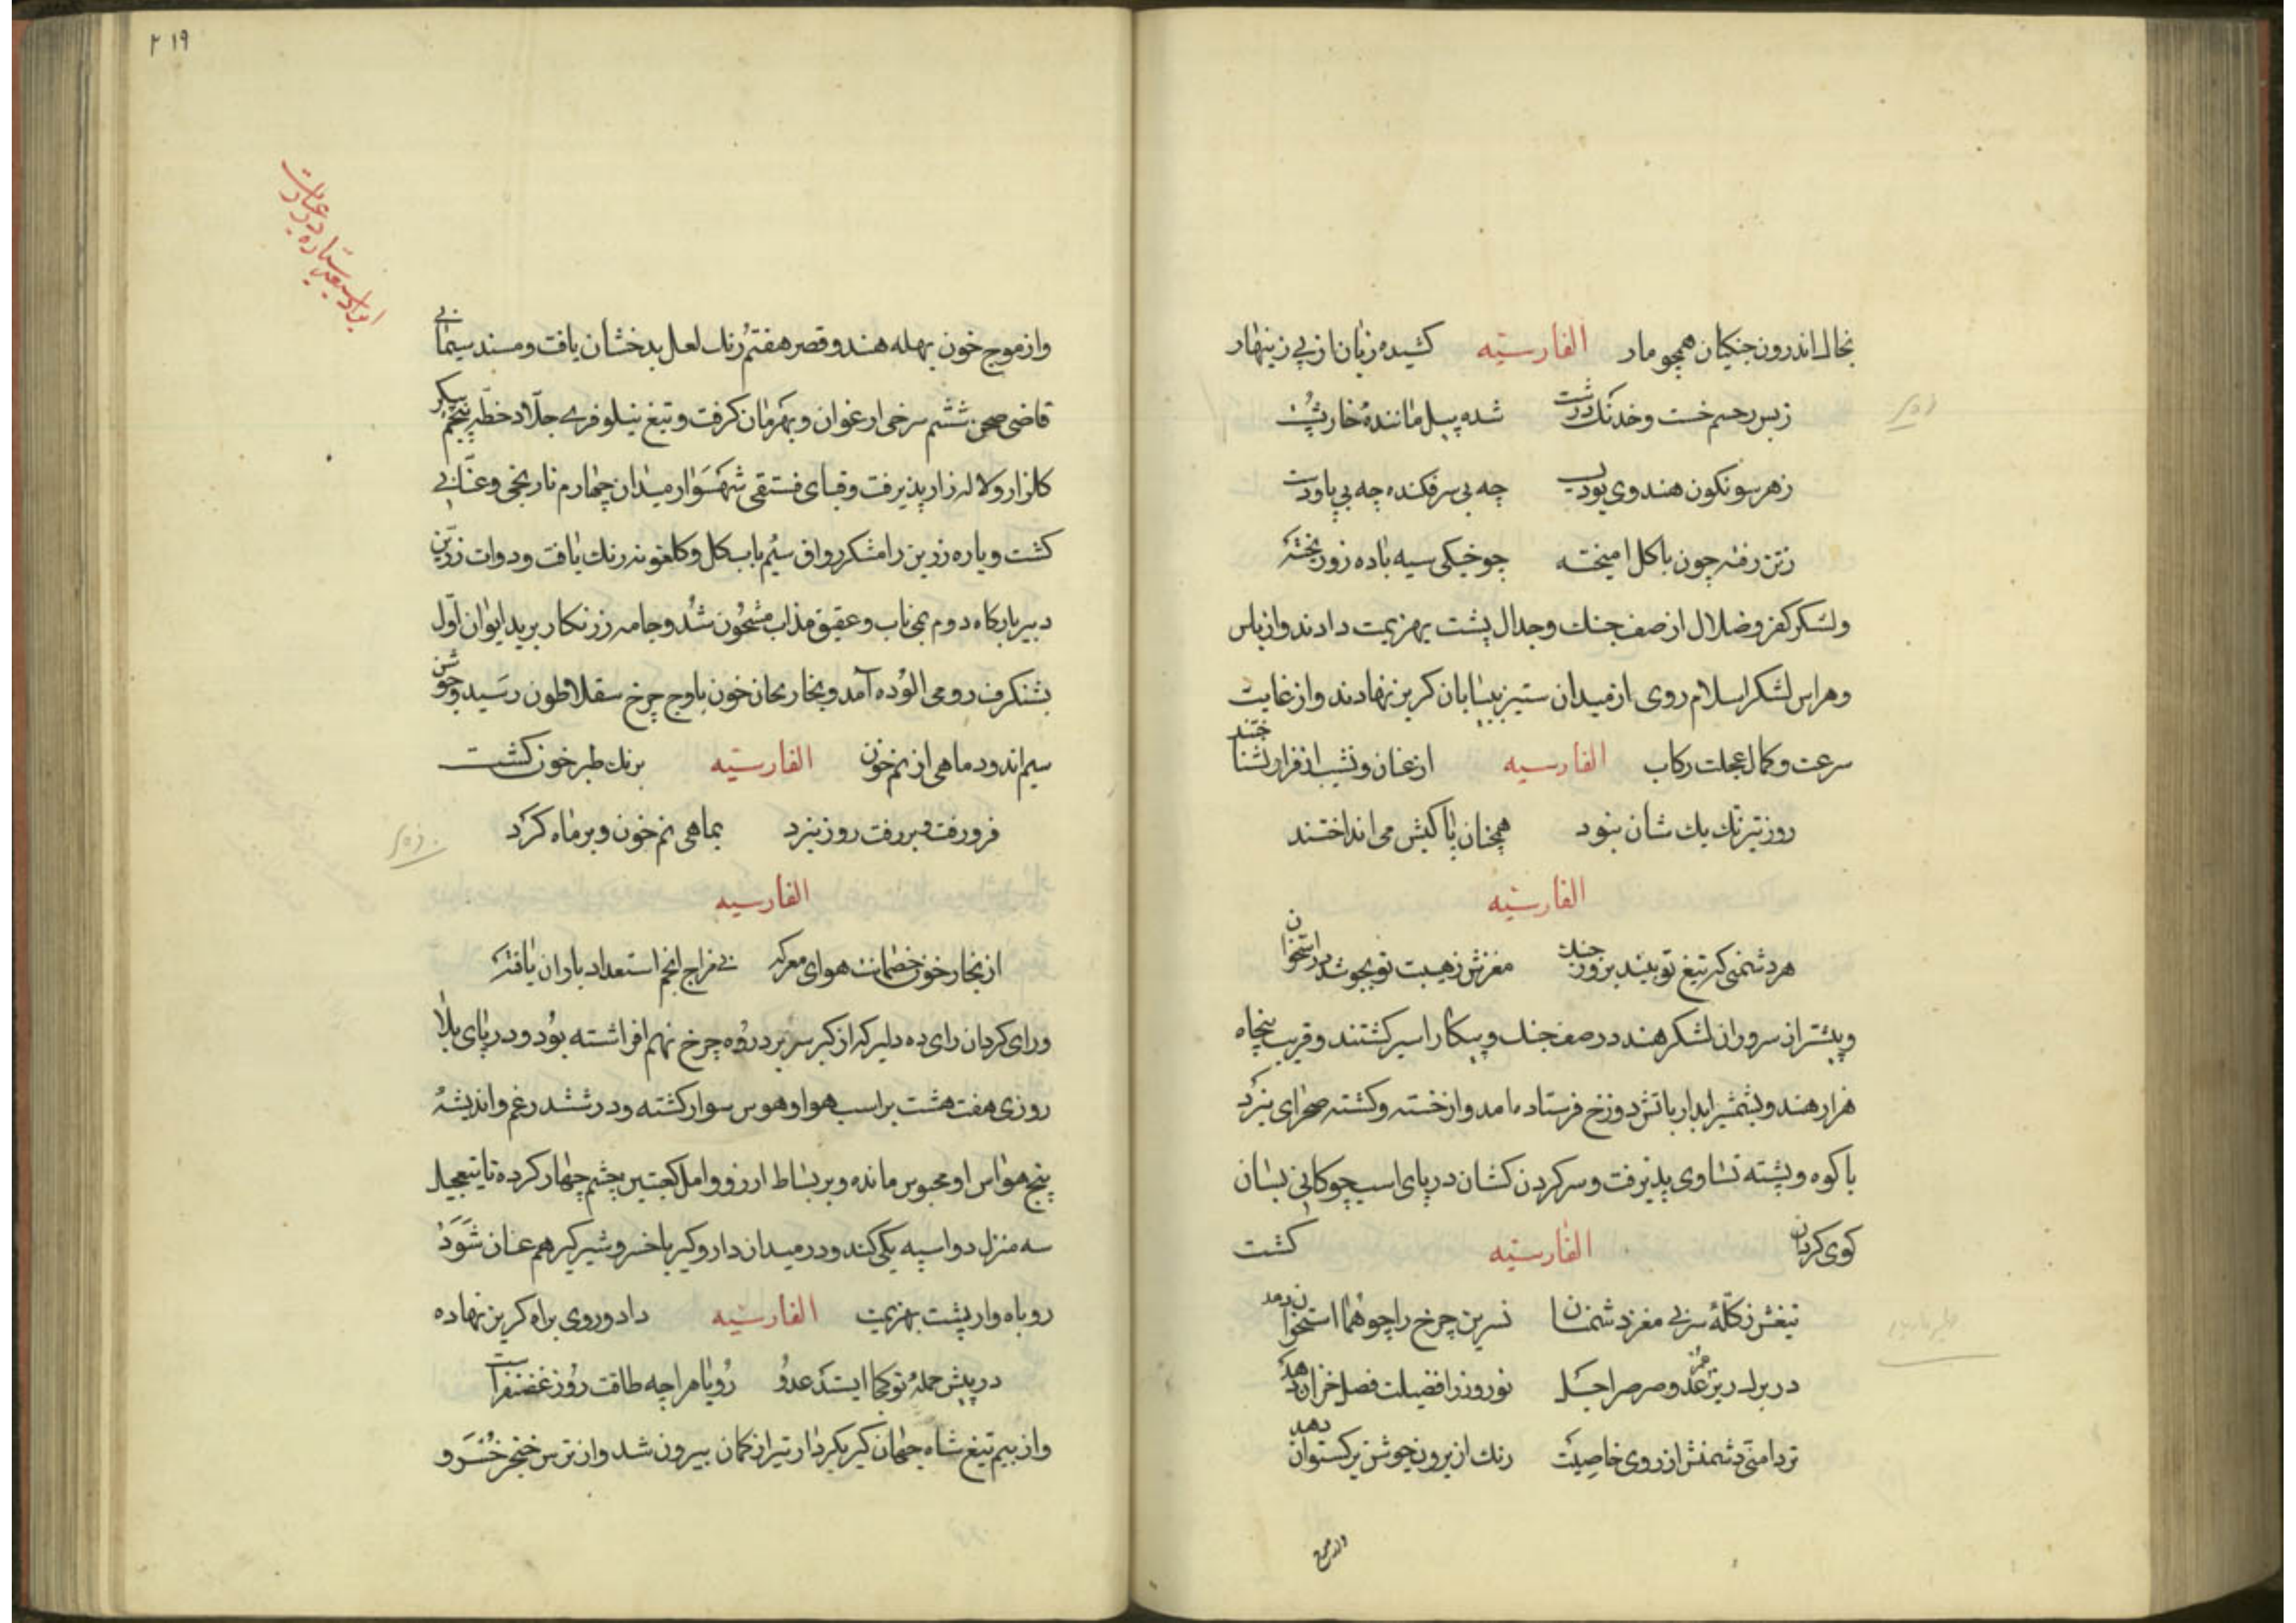 بخاك اندرون جنکیان همچو مار الفارسیّه کشیده زبان از پی زینهار
زبس رحم خست و خدنك درشت شده پیل مانندهٔ خارپشت
زهر سو نکون هندوی بود پست چه بی سر فکنده چه بی پا و دست
زتن رفته خون با کل امیخته چو خیکی سیه باده زو ریخته
ولشکر کفر و ضلال از صف جنك و جدال پشت بهزیمت دادند و از باس
و هراس لشکر اسلام روی از میدان ستیز ببیابان کریز نهادند و از غایت
سرعت و کمال عجلت رکاب الفارسیه از عنان و نشیب از فراز نشناختند
روز تیر ترك یك شان نبود همچنان با کیش می انداختند
الفارسیّه
هر دشمنی که تیغ تو بیند بروز جنك مغزش ز هیبت تو بجوشد در استخوان
و بیشتر از سروران لشکر هند در صف جنك و پیکار اسیر کشتند و قریب پنجاه
هزار هندو بشمشیر ابدار باتش دوزخ فرستاده امد و از خسته و کشته صحرای نبرد
با کوه و پشته تساوی پذیرفت و سر کردن کشان در پای اسب چوکانی بسان
کوی کردان الفارسیّه کشت
تیغش ز کلّهٔ سر بی مغز دشمنان نسرین چرخ را چو هما استخوان دهد
در برك ریز عمر عدو صرصر اجل نوروز را فضیلت فصل خزان دهد
تردامنی دشمنش از روی خاصیت رنك از برون جوشن برکستوان دهد
واز موج
۲۱۹
و از موج خون بهله هندو قصر هفتم رنك لعل بدخشان یافت و مسند سیمابی
قاضی صحن ششم سرخی ارغوان و بهرمان کرفت و تیغ نیلوفری جلّاد خطّه پنجم پیکر
کلزار و لاله زار پذیرفت و قبای فستقی شهسوار میدان چهارم نارنجی و عنّابی
کشت و یاره زرین رامشکر رواق سیُم باب کل و کلغونه رنك یافت و دوات زرّین
دبیر بارکاه دوم بمی ناب و عقیق مذاب مشحون شد و جامه زرنکار برید ایوان اوّل
بشنکرف رومی الوده آمد و بخار بحار خون باوج چرخ سقلاطون رسید و جوشن
سیم اندود ماهی از نم خون الفارسیّه برنك طبرخون کشت
فرو رفت و بر رفت روز نبرد بماهی نم خون و بر ماه کرد
الفارسیه
از بخار خون خصمانت هوای معرکه بی مزاج انجم استعداد باران یافته
و رای کردان رای ده دلیر که از کبر سر بر ذروه چرخ نهم افراشته بود و در پای بلا
روزی هفت هشت بر اسب هوا و هوس سوار کشته و در ششدر غم و اندیشهٔ
پنج حواس او محبوس مانده و بر بساط ارزو و امل کعبتین چشم چهار کرده تا بتعجیل
سه منزل دو اسپه یکی کند و در میدان دار و کیر با خسرو شیر کیر هم عنان شود
روباه وار پشت بهزیمت الفارسیّه داد و روی براه کریز نهاده
در پیش حملهٔ تو کجا ایستد عدو روباه را چه طاقت روز غضنفر است
و از بیم تیغ شاه جهان کیر بکردار تیر از کمان بیرون شد و از ترس خنجر خسرو